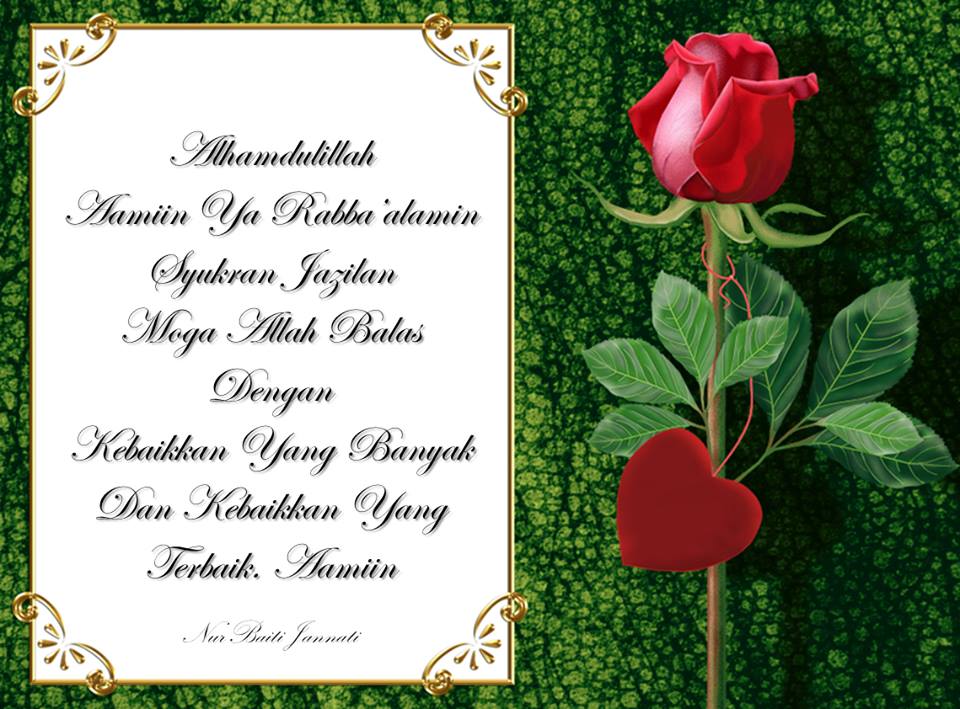 Alhamdulillah
Aamiin Ya Rabba'alamin
Syukran Jazilan
Moga Allah Balas
Dengan
Kebaikkan Yang Banyak
Dan Kebaikkan Yang
Terbaik. Aamiin
Nur Baiti Jannati